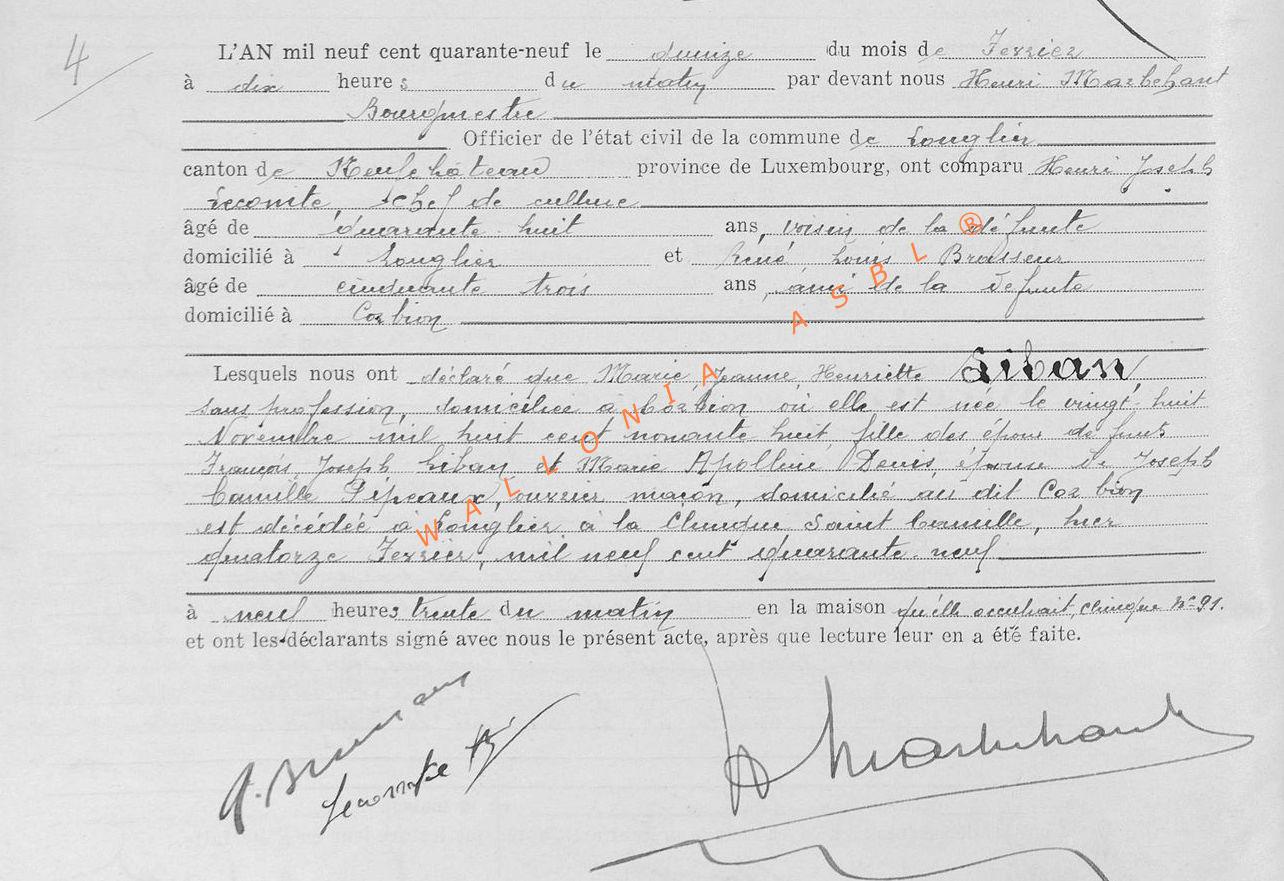 4
L'AN mil neuf cent quarante-neuf le quinze du mois de Février
à dix heures du matin par devant nous Henri Marbehant
Bourgmestre
Officier de l'état civil de la commune de Longlier
canton de Neufchâteau province de Luxembourg, ont comparu Henri Joseph
Lecomte, chef de culture
âgé de quarante huit ans, voisin de la défunte
domicilié à Longlier et René, Louis Brasseur
âgé de cinquante trois ans, ami de la défunte
domicilié à Corbion
Lesquels nous ont déclaré que Marie, Jeanne, Henriette Liban
sans profession, domiciliée à Corbion où elle est née le vingt-huit
Novembre mil huit cent nonante huit, fille des époux défunts
François, Joseph Liban et Marie Apolline Denis, épouse de Joseph
Camille Pipeaux, ouvrier maçon, domicilié au dit Corbion
est décédée à Longlier à la Clinique Saint Camille, hier
quatorze Février, mil neuf cent quarante-neuf
à neuf heures trente du matin en la maison qu'elle occupait, clinique N° 91.
et ont les déclarants signé avec nous le présent acte, après que lecture leur en a été faite.
Lecomte H
H Marbehant
WALLONIA ASBL ®